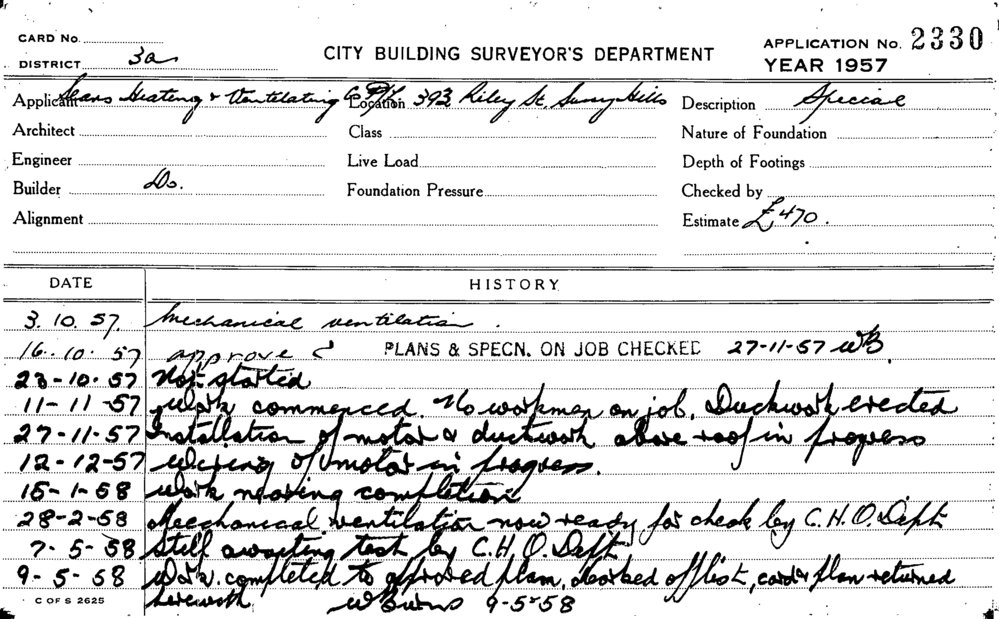 CARD No.
DISTRICT 3a
CITY BUILDING SURVEYOR'S DEPARTMENT
APPLICATION No. 2330
YEAR 1957
Applicant Sears Heating & Ventilating Co P/L Location 393 Riley St, Surry Hills Description Special
Architect Class Nature of Foundation
Engineer Live Load Depth of Footings
Builder Do. Foundation Pressure Checked by
Alignment Estimate £470.
DATE HISTORY
3.10.57. Mechanical ventilation.
16.10.57 approve PLANS & SPECN. ON JOB CHECKED 27-11-57 WB.
23-10-57 Not started
11-11-57 Work commenced. No workmen on job. Ductwork erected
27-11-57 Installation of motor & ductwork above roof in progress
12-12-57 Wiring of motor in progress.
15-1-58 Work nearing completion
28-2-58 Mechanical ventilation now ready for check by C.H.O. Dept
7-5-58 Still awaiting test by C.H.O. Dept
9-5-58 Work completed to approved plan, marked off list, card & plan returned
herewith W Burns 9-5-58
C OF S 2625